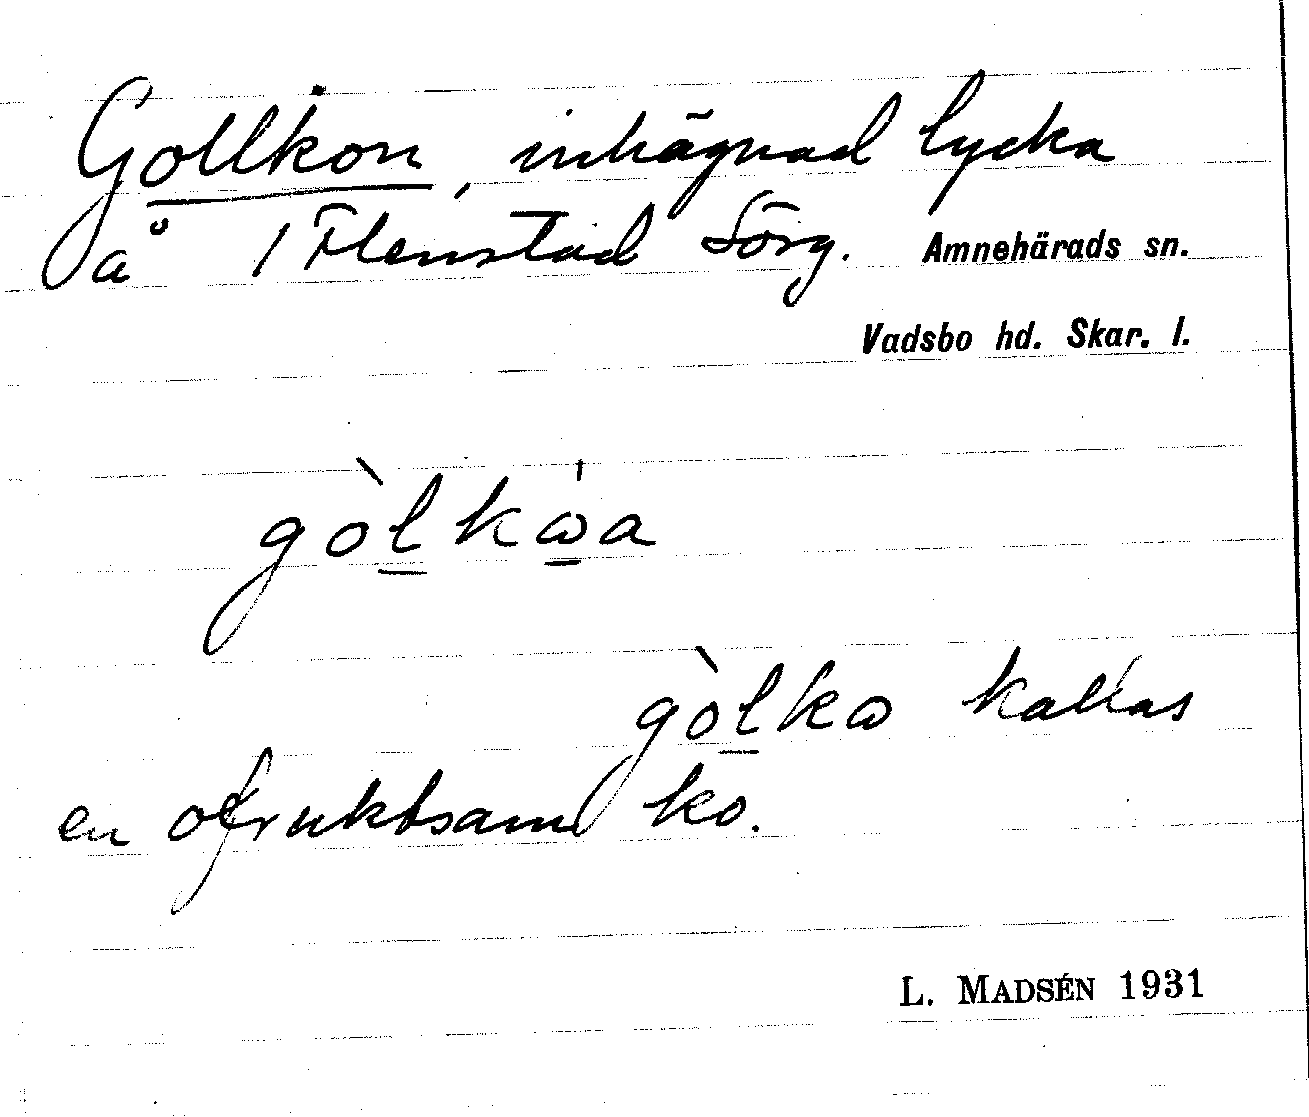 Gollkon, inhägnad lycka
å 1 Flenstad Sörg. Amnehärads sn.
Vadsbo hd. Skar. l.
gòlkωa
gòlkω kallas
en ofruktsam ko.
L. MADSÉN 1931